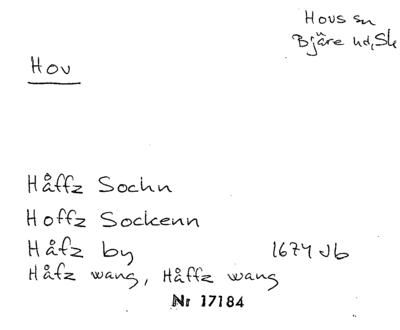 Hovs sn
Bjäre hd, Sk
Hov
Håffz Sochn
Hoffz Sockenn
Håfz by 1674 Jb
Håfz wang, Håffz wang
Nr 17184